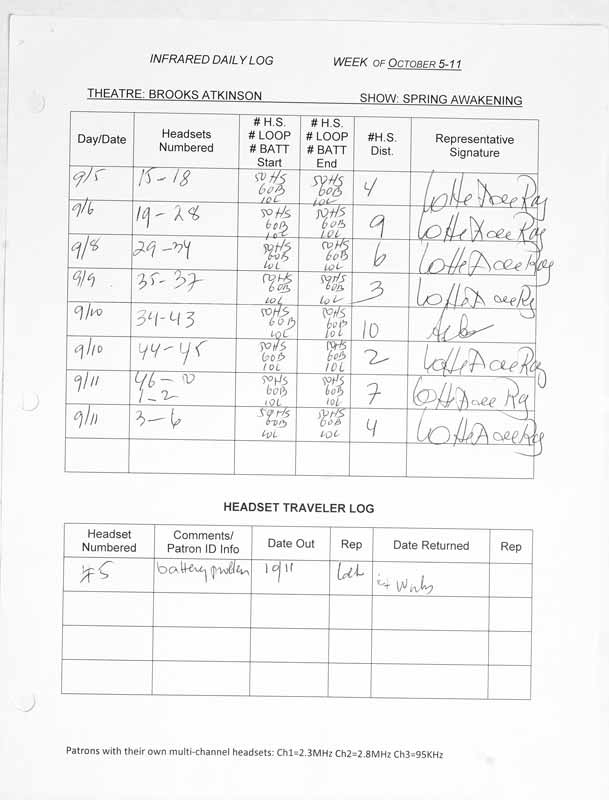 INFRARED DAILY LOG WEEK OF OCTOBER 5-11
THEATRE: BROOKS ATKINSON SHOW: SPRING AWAKENING
Day/Date Headsets Numbered # H.S. # LOOP # BATT Start # H.S. # LOOP # BATT End #H.S. Dist. Representative Signature
9/5 15-18 50HS 60B 10L 50HS 60B 10L 4
9/6 19-28 50HS 60B 10L 50HS 60B 10L 9
9/8 29-34 50HS 60B 10L 50HS 60B 10L 6
9/9 35-37 50HS 60B 10L 50HS 60B 10L 3
9/10 34-43 50HS 60B 10L 50HS 60B 10L 10
9/10 44-45 50HS 60B 10L 50HS 60B 10L 2
9/11 46-0 1-2 50HS 60B 10L 50HS 60B 10L 7
9/11 3-6 50HS 60B 10L 50HS 60B 10L 4
HEADSET TRAVELER LOG
Headset Numbered Comments/ Patron ID Info Date Out Rep Date Returned Rep
#5 battery problem 10/11 it works
Patrons with their own multi-channel headsets: Ch1=2.3MHz Ch2=2.8MHz Ch3=95KHz